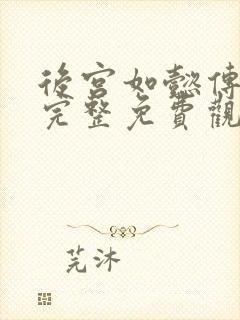 後宮如懿傳
完整免費觀
芫沐